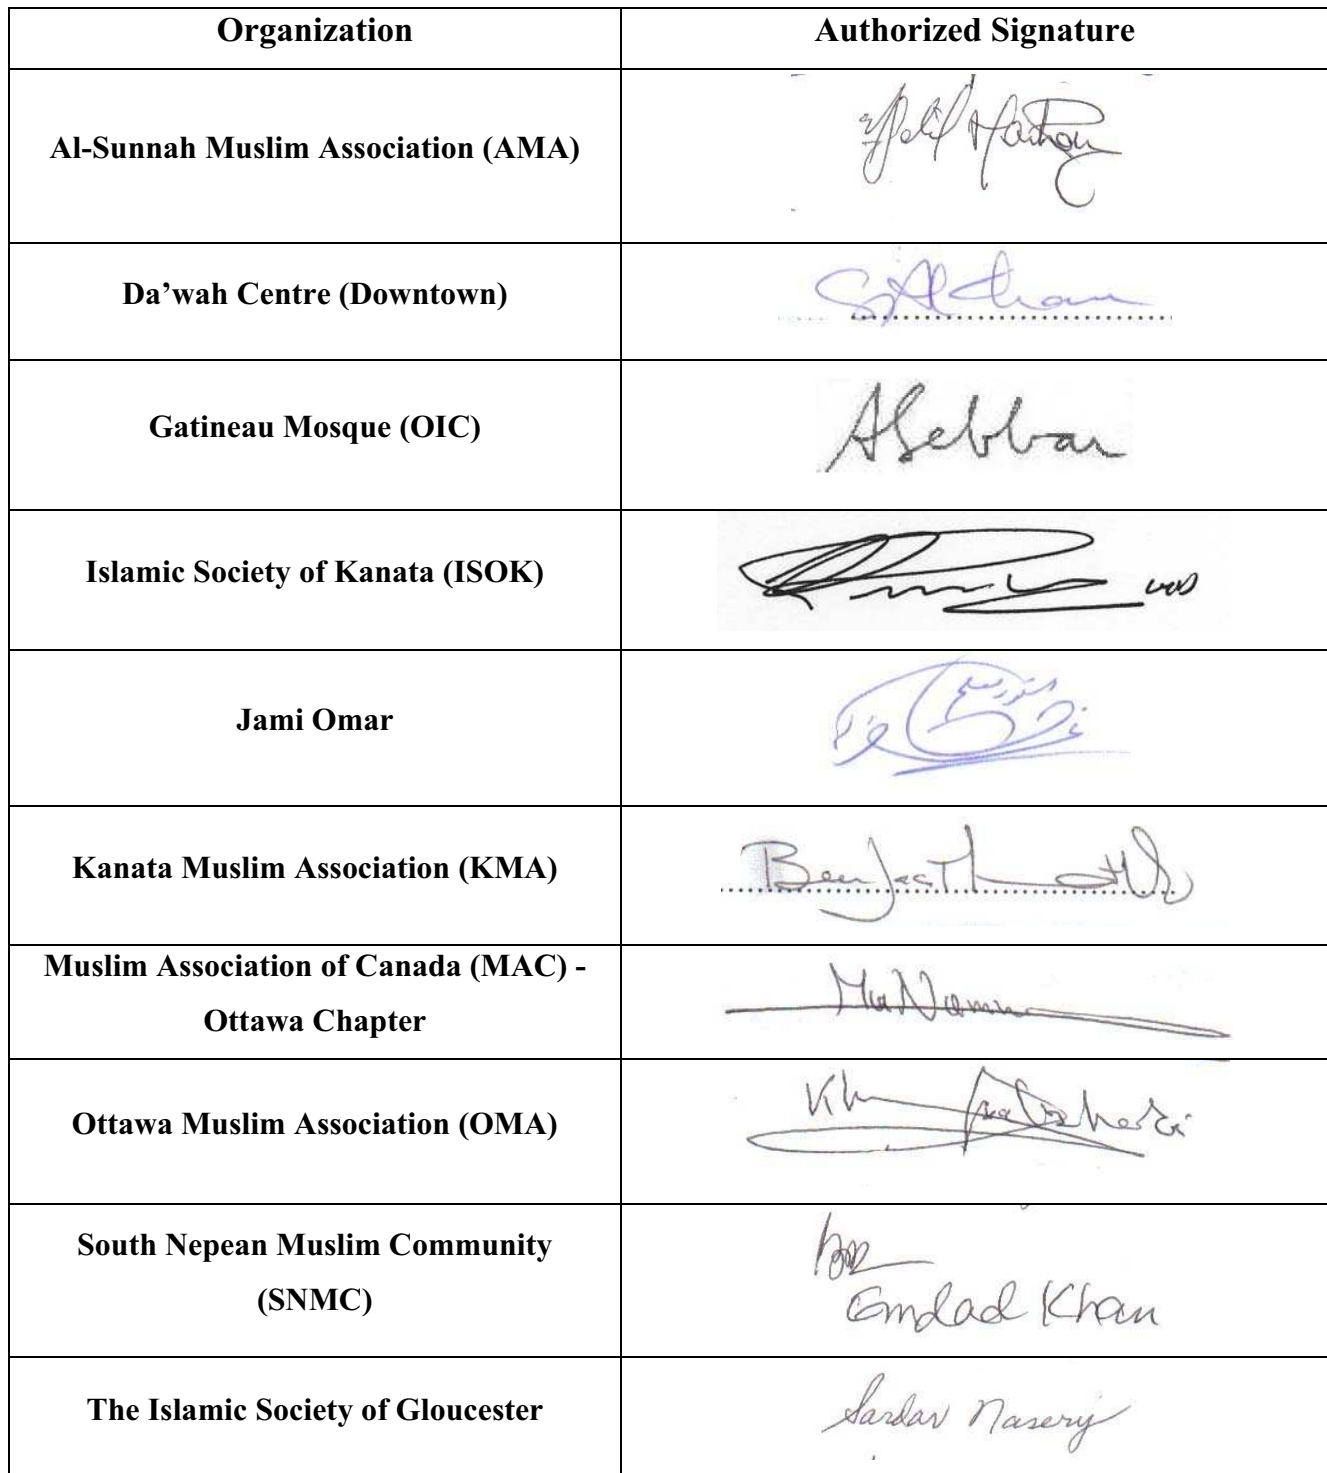 Organization
Authorized Signature
Al-Sunnah Muslim Association (AMA)
Da’wah Centre (Downtown)
Gatineau Mosque (OIC)
ASebbar
Islamic Society of Kanata (ISOK)
Jami Omar
Kanata Muslim Association (KMA)
Muslim Association of Canada (MAC) -
Ottawa Chapter
Ottawa Muslim Association (OMA)
South Nepean Muslim Community
(SNMC)
Emdad Khan
The Islamic Society of Gloucester
Sardar Nasery